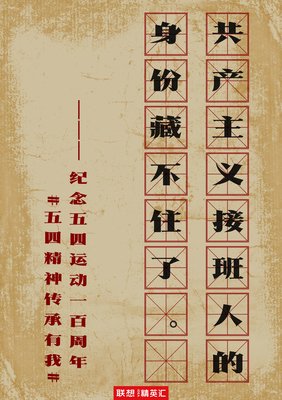 共产主义接班人的
身份藏不住了。
———纪念五四运动一百周年
#五四精神传承有我#
联想 精英汇